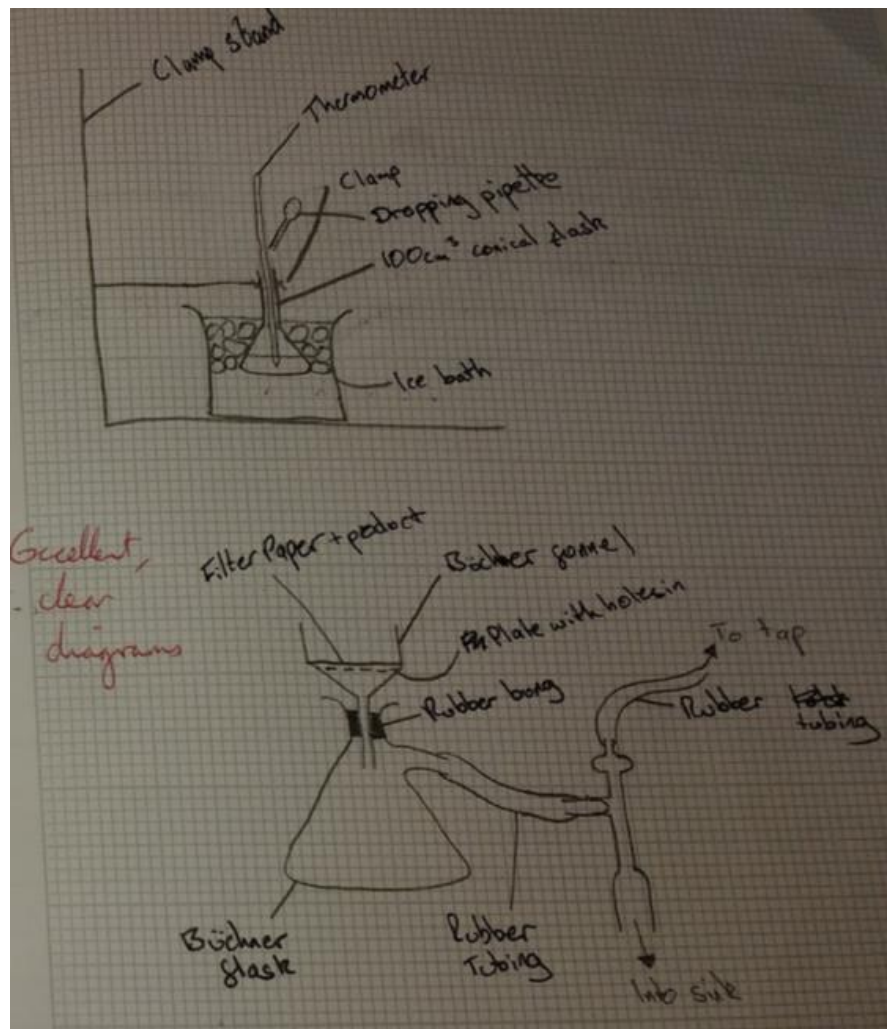 Clamp stand
Thermometer
Clamp
Dropping pipette
100cm³ conical flask
Ice bath
Excellent,
clear
diagrams
Filter Paper + product
Büchner funnel
Plate with holes in
Rubber bung
To tap
Rubber
tubing
Büchner
flask
Rubber
Tubing
Into sink